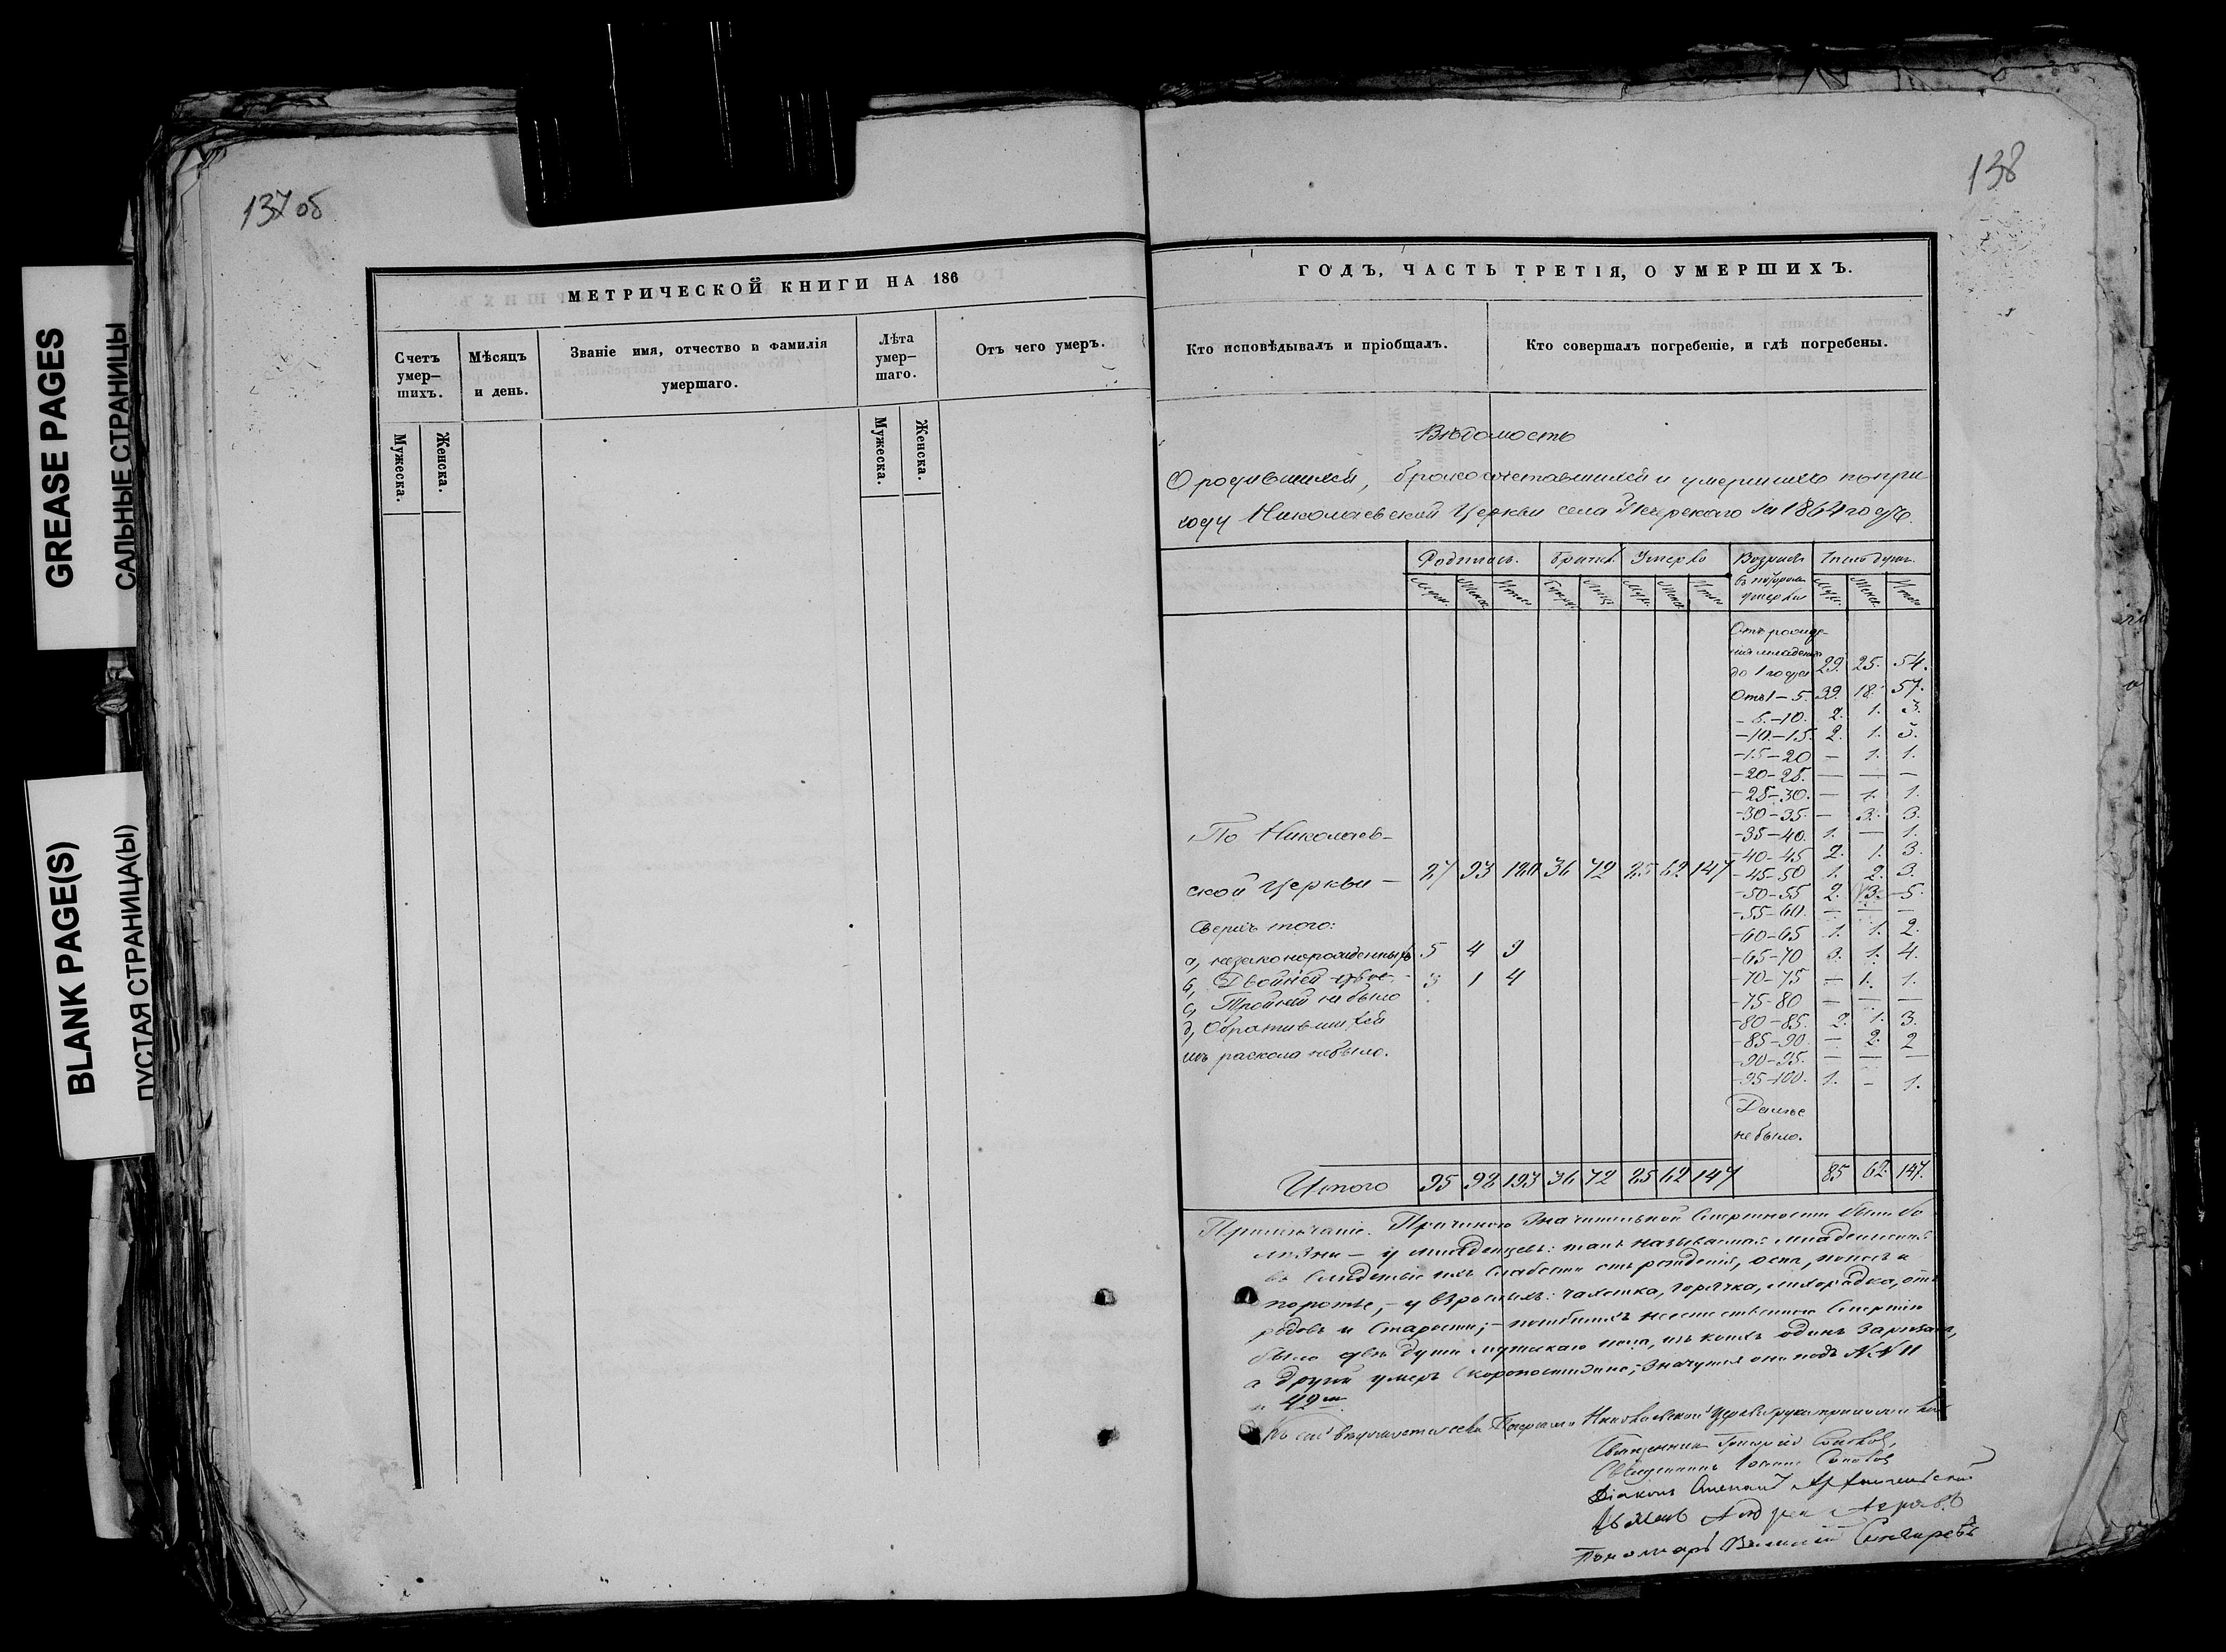 GREASE PAGES
САЛЬНЫЕ СТРАНИЦЫ
BLANK PAGE(S)
ПУСТАЯ СТРАНИЦА(Ы)
137 об
МЕТРИЧЕСКОЙ КНИГИ НА 186
Счетъ умер-шихъ.
Мѣсяцъ и день.
Званіе имя, отчество и фамилія умершаго.
Лѣта умер-шаго.
Отъ чего умеръ.
Мужеска.
Женска.
Мужеска.
Женска.
138
ГОДЪ, ЧАСТЬ ТРЕТІЯ, О УМЕРШИХЪ.
Кто исповѣдывалъ и пріобщалъ.
Кто совершалъ погребеніе, и гдѣ погребены.
Вѣдомость
О родившихся, бракосочетавшихся и умершихъ по при
ходу Николаевской Церкви села за 1864 годъ.
Родилось. Браковъ Умерло Возрастъ Число душъ.
въ которомъ умерли
Отъ рожде-
нія младенцевъ
до 1 года 29. 25. 54.
Отъ 1 – 5. 39. 18. 57.
– 5. – 10. 2. 1. 3.
– 10. – 15. 2. 1. 3.
– 15 – 20 – 1. 1.
– 20 – 25. – – –
– 25 – 30. – 1. 1.
– 30 – 35. – 3. 3.
– 35 – 40. 1. – 1.
– 40 – 45 2. 1. 3.
– 45 – 50 1. 2. 3.
– 50 – 55 2. 3. 5.
– 55 – 60. – – –
– 60 – 65 1. 1. 2.
– 65 – 70 3. 1. 4.
– 70 – 75 – 1. 1.
– 75 – 80 – – –
– 80 – 85. 2. 1. 3.
– 85 – 90. – 2. 2
– 90 – 95. – – –
– 95 – 100. 1. – 1.
Далѣе
не было.
По Николаев-
ской Церкви – 36 72 85 62 147
Сверхъ того:
а, незаконнорожденныхъ 5 4 9
б, Двойней 3 1 4
с, Тройней не было
д, Обратившихся
изъ раскола не было.
Итого 95 98 193 36 72 85 62 147 85 62. 147.
Примѣчаніе. Причиною значительной смертности были бо
лѣзни – у младенцевъ: такъ называемая младенческая
въ слѣдствіе ихъ слабости отъ рожденія, оспа, поносъ и
– у взрослыхъ: чахотка, горячка, лихорадка, отъ
родовъ и старости; – погибшихъ неестественною смертію
было двѣ души мужскаго пола, изъ коихъ одинъ зарѣзался,
а другой умеръ скоропостижно; значутся они подъ №№ 11
и 42
Къ сей Николаевской Церкви руку приложили
Священникъ Григорій
Священникъ Іоаннъ
Діаконъ
Андрей
Пономарь Василій